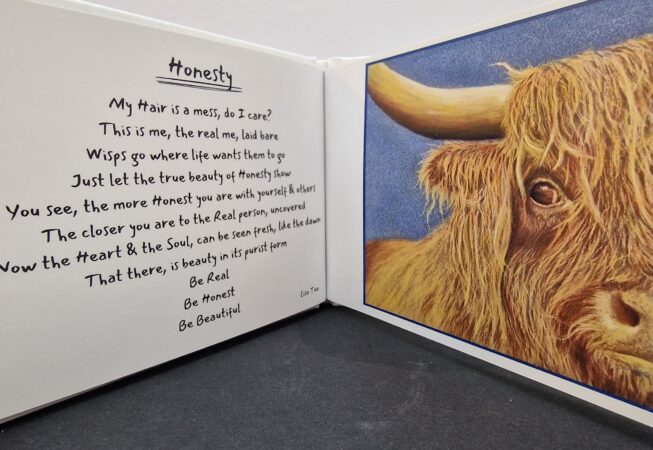 Honesty
My Hair is a mess, do I care?
This is me, the real me, laid bare
Wisps go where life wants them to go
Just let the true beauty of Honesty show
You see, the more Honest you are with yourself & others
The closer you are to the Real person, uncovered
Now the Heart & the Soul, can be seen fresh, like the dawn
That there, is beauty in its purist form
Be Real
Be Honest
Be Beautiful